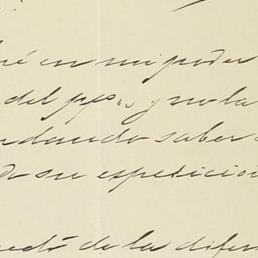 ré en mi poder
del ppdo, y no la
ndando saber
do su expedició
edó de la difer